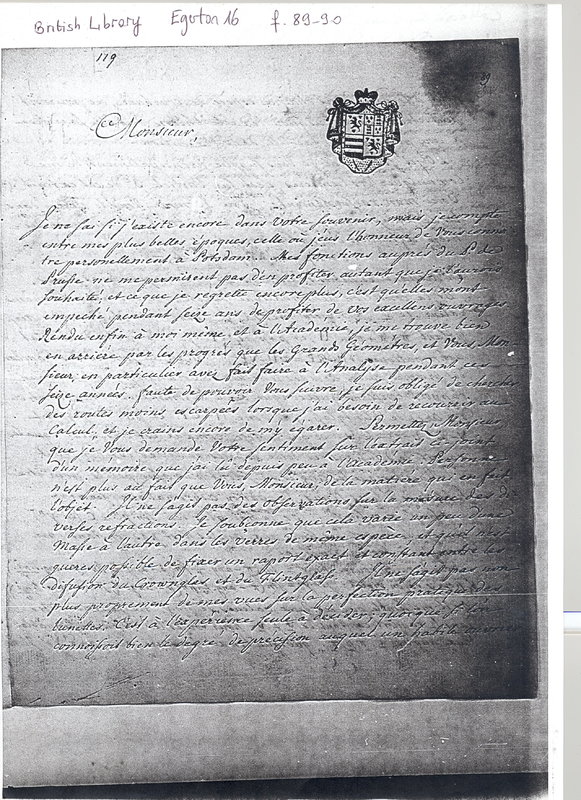 British Library Egerton 16 f. 89-90
119
89
Monsieur,
Je ne sai si j'existe encore dans votre souvenir, mais je compte
entre mes plus belles époques, celle où j'eus l'honneur de Vous connoi
tre personellement à Potsdam. Mes fonctions auprés du P. de
Prusse ne me permirent pas d'en profiter autant que je l'aurois
souhaité, et ce que je regrette encore plus, c'est qu'elles m'ont
empeché pendant seize ans de profiter de vos excellens ouvrages.
Rendu enfin à moi même et à l'Academie, je me trouve bien
en arriere par les progrès que les Grands Geometres, et Vous Mon
sieur, en particulier avez fait faire à l'Analyse pendant ces
seize années. faute de pouvoir Vous suivre, je suis obligé de chercher
des routes moins escarpées lorsque j'ai besoin de recourir au
Calcul, et je crains encore de m'y égarer. Permettez, Monsieur
que je Vous demande Votre sentiment sur l'extrait ci joint
d'un memoire que j'ai lu depuis peu à l'Academie. Personne
n'est plus au fait que Vous Monsieur, de la matiere qui en fait
l'objet. Il ne s'agit pas des observations sur la mesure des di
verses refractions. Je soubçonne que cela varie un peu d'une
Masse à l'autre dans les verres de même espece, et qu'il n'est
gueres possible de fixer un raport exact et constant entre les
difusion du Crownglas et du Flintglass. Il ne s'agit pas non
plus proprement de mes vues sur la perfection pratique des
lunettes. C'est à l'experience seule à décider, quoique si l'on
connoissoit bien le degré de précision auquel un habile